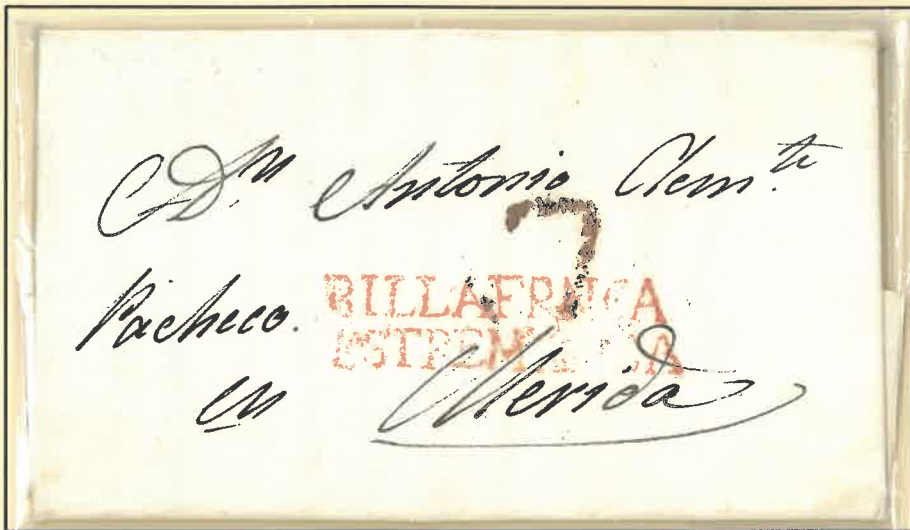 Dn Antonio Clemte
7
Pacheco.
BILLAFRANCA
ESTREMADURA
en Merida